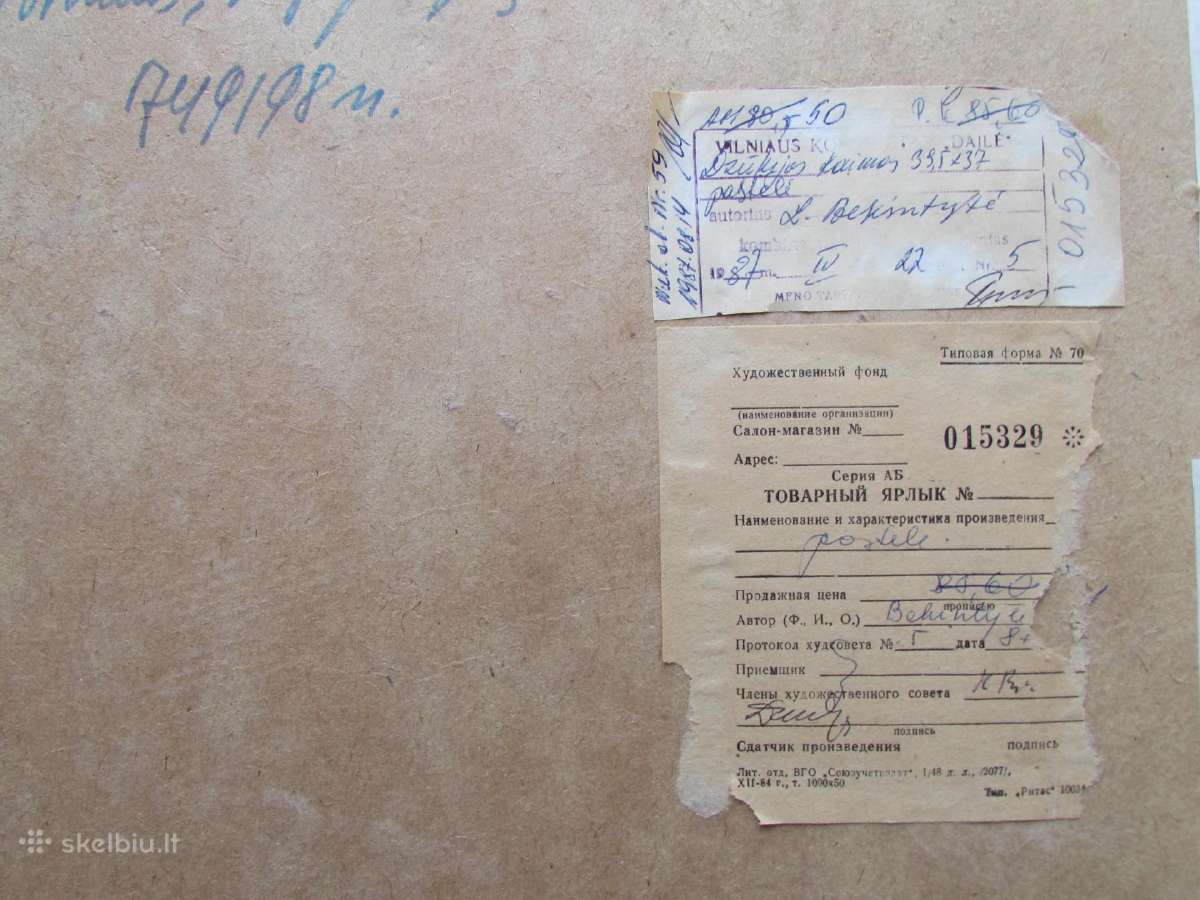 749/98 u.
80,- 50 P. L. 85,60
VILNIAUS KO DAILĖ"
Dzūkijos kaimas 39,5x37
pastelė
autorius L. Bekintytė
kombi
1987 m. IV 22 Nr. 5
MENO TAR
Nr. 59
1987.08.14
015329
Типовая форма № 70
Художественный фонд
(наименование организации)
Салон-магазин №
015329
Адрес:
Серия АБ
ТОВАРНЫЙ ЯРЛЫК №
Наименование и характеристика произведения
pastelė.
Продажная цена 85,60
прописью
Автор (Ф., И., О.) Bekintytė
Протокол худсовета № 5 дата 8
Приемщик
Члены художественного совета
подпись
Сдатчик произведения подпись
Лит. отд. ВГО „Союзучетиздат", 1/48 л. л., /2077/,
XII-84 г., т. 1000x50
Тип. „Ритас" 1003
skelbiu.lt